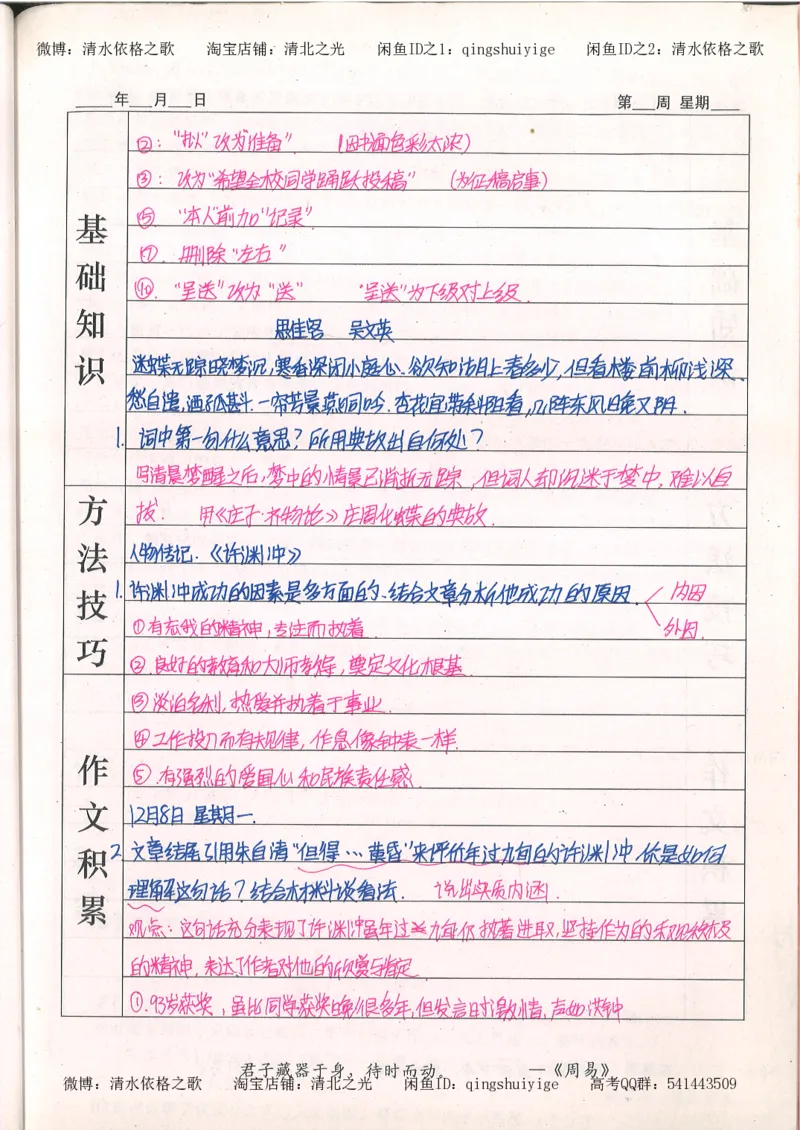 微博：清水依格之歌 淘宝店铺：清北之光 闲鱼ID之1：qingshuiyige 闲鱼ID之2：清水依格之歌
____年___月___日 第___周 星期____
基础知识
②："拟"改为"准备" （因书面色彩太浓）
③：改为"希望全校同学踊跃投稿" （为征稿启事）
⑤ "本人"前加"记录"
⑦．删除"左右"
⑩．"呈送"改为"送" "呈送"为下级对上级．
思佳客 吴文英
迷蝶无踪晓梦沉，寒香深闭小庭心．欲知湖上春多少，但看楼前柳浅深．
愁自遣，酒孤斟．一帘芳景燕同吟．杏花宜带斜阳看，几阵东风晚又阴．
1．词中第一句什么意思？所用典故出自何处？
写清晨梦醒之后，梦中的情景已消逝无踪，但词人却沉迷于梦中，难以自
拔． 用《庄子·齐物论》庄周化蝶的典故．
方法技巧
人物传记．《许渊冲》
1．许渊冲成功的因素是多方面的、结合文章分析他成功的原因． 内因
外因．
①有忘我的精神，专注而执着
②．良好的教育和大师教得，奠定文化根基．
作文积累
③淡泊名利，热爱并执着于事业．
④工作投入而有规律，作息像钟表一样．
⑤．有强烈的爱国心和民族责任感．
12月8日 星期一．
2．文章结尾引用朱自清"但得…黄昏"来评价年过九旬的许渊冲．你是如何
理解这句话？结合材料谈看法． 说出实质内涵．
观点：这句话充分表现了许渊冲虽年过九旬仍执著进取，坚持作为的乐观积极
的精神，表达了作者对他的欣赏与肯定．
①．93岁获奖，虽比同学获奖晚很多年，但发言时激情，声如洪钟
君子藏器于身，待时而动。 —《周易》
微博：清水依格之歌 淘宝店铺：清北之光 闲鱼ID：qingshuiyige 高考QQ群：541443509